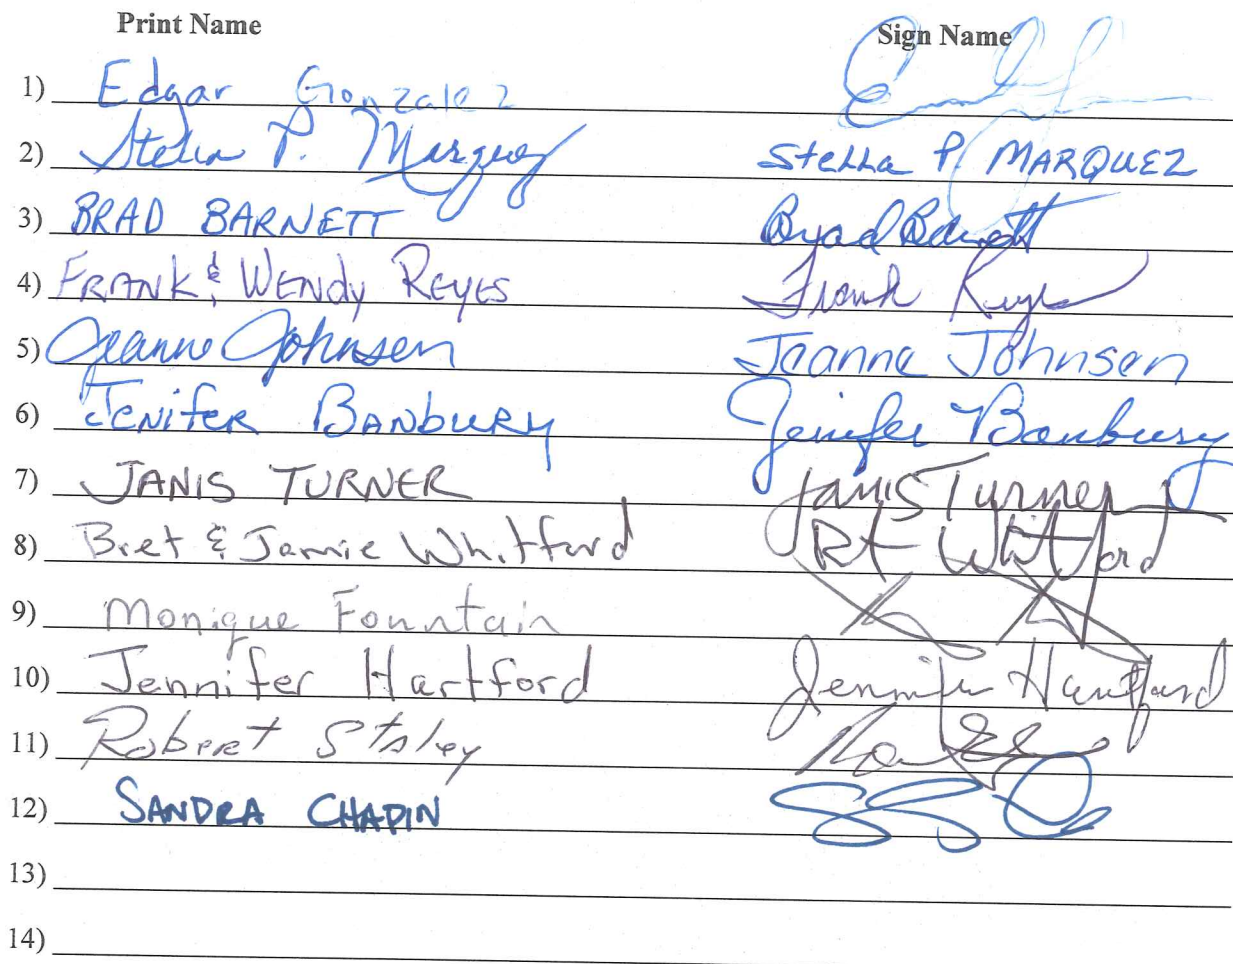 Print Name Sign Name
1) Edgar Gonzalez
2) Stella P. Marquez Stella P. MARQUEZ
3) BRAD BARNETT Brad Barnett
4) FRANK & WENDY REYES Frank Reyes
5) Jeanne Johnsen Jeanne Johnsen
6) JENIFER BANBURY Jenifer Banbury
7) JANIS TURNER Janis Turner
8) Bret & Jamie Whitford Whitford
9) Monique Fountain
10) Jennifer Hartford Jennifer Hartford
11) Robert Staley
12) SANDRA CHAPIN
13)
14)